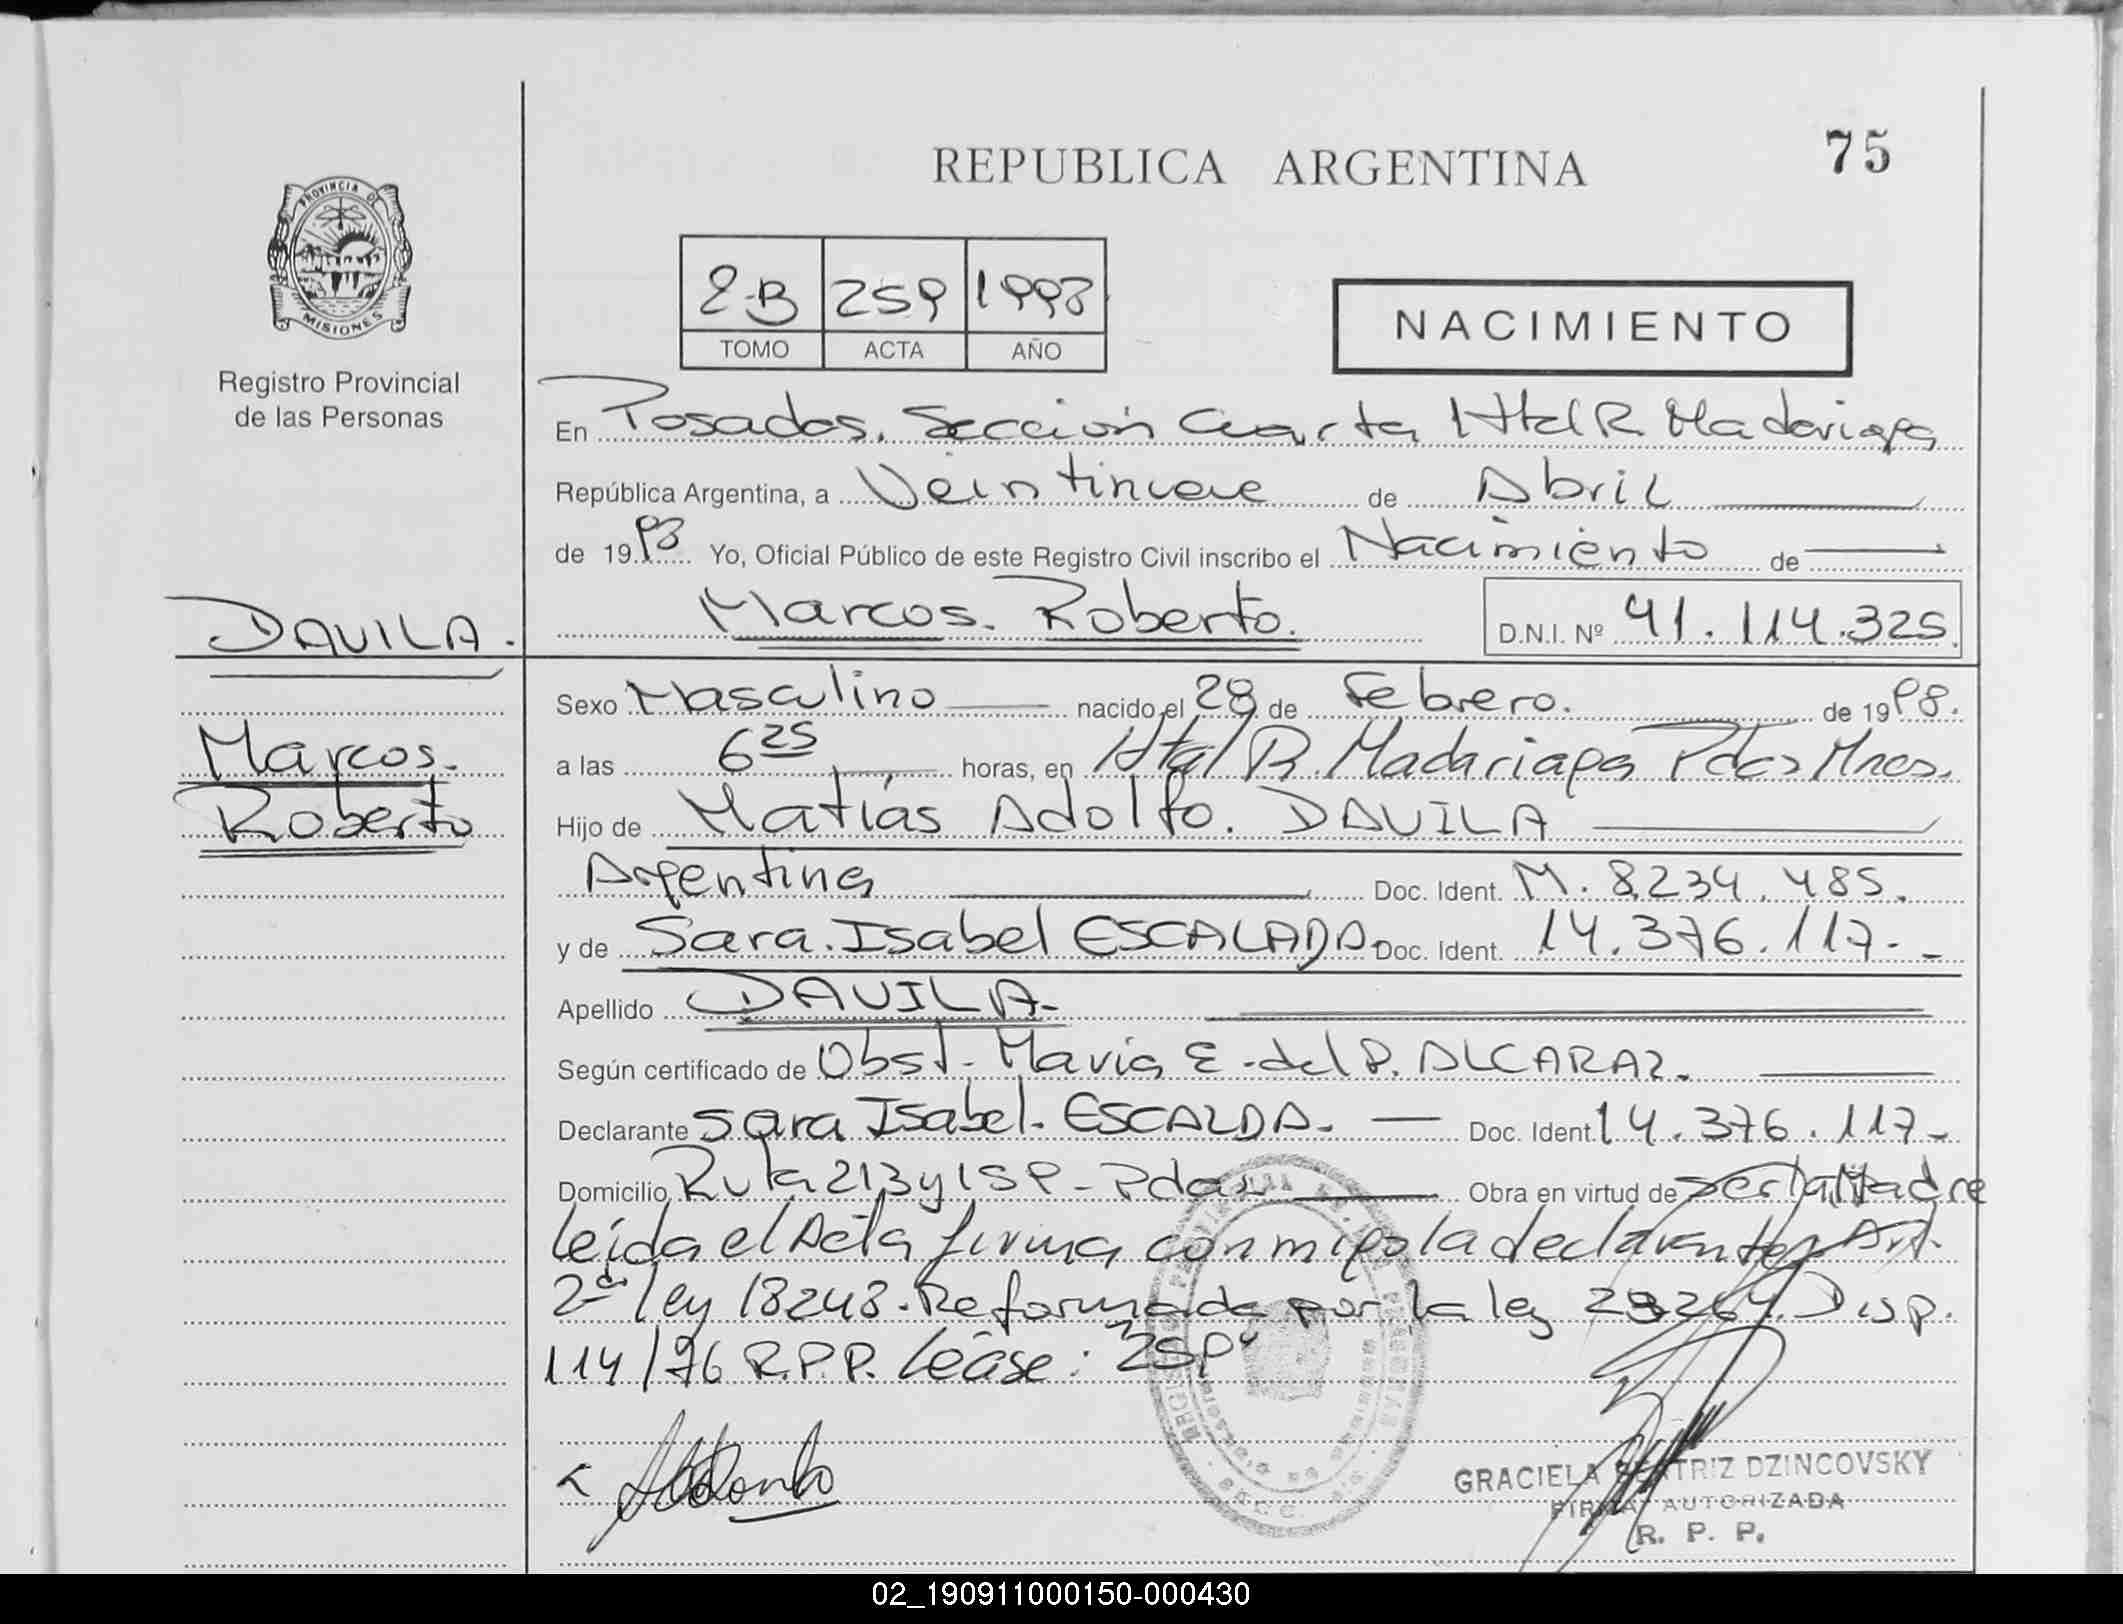 REPUBLICA ARGENTINA
75
PROVINCIA DE
MISIONES
Registro Provincial
de las Personas
2-B 259 1998
TOMO ACTA AÑO
NACIMIENTO
En Posadas. Sección Cuarta Htal R Madariaga
República Argentina, a Veintinueve de Abril
de 1998 Yo, Oficial Público de este Registro Civil inscribo el Nacimiento de
Marcos. Roberto. D.N.I. Nº 41.114.325.
DAVILA.
Marcos.
Roberto
Sexo Masculino nacido el 28 de Febrero. de 1998.
a las 6 25 horas, en Htal R. Madariaga Pdas Mnes.
Hijo de Matías Adolfo. DAVILA
Argentina Doc. Ident. M. 8.234.485.
y de Sara. Isabel ESCALADA. Doc. Ident. 14.376.117.-
Apellido DAVILA-
Según certificado de Obst. María E. del P. ALCARAZ.
Declarante Sara Isabel. ESCALDA. Doc. Ident. 14.376.117-
Domicilio Ruta 213 y 159 - Pdas Obra en virtud de ser la Madre
leída el Acta firma conmigo la declarante Art.
2da ley 18248. Reformada por la ley 23264. Disp.
114/96 R.P.P. Léase: "259"
GRACIELA BEATRIZ DZINCOVSKY
FIRMA AUTORIZADA
R. P. P.
02_190911000150-000430